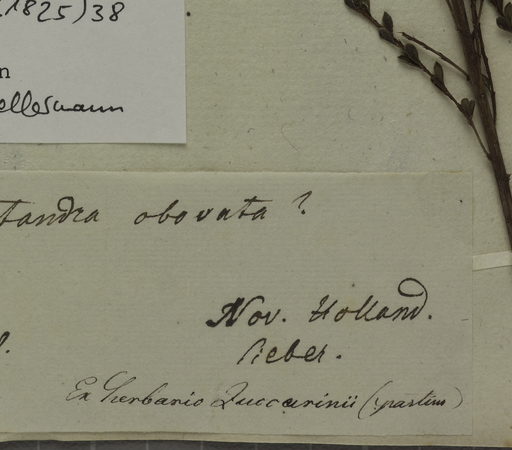 1825)38
n
ellermann
tandra obovata?
Nov. Holland.
Sieber.
Ex Herbario Zuccarinii (partim)